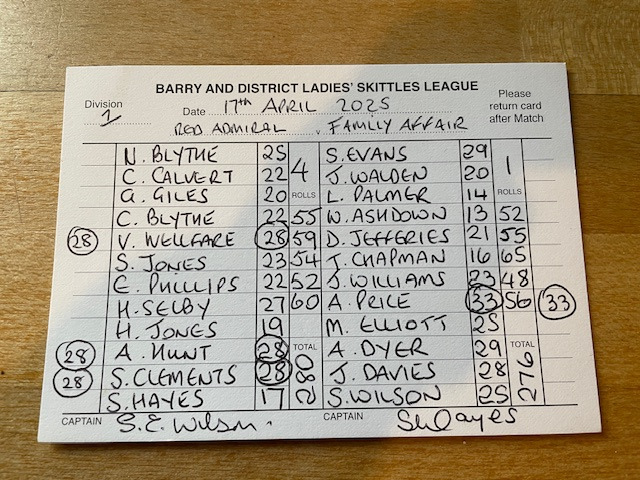 BARRY AND DISTRICT LADIES' SKITTLES LEAGUE
Division 1 Date 17th APRIL 2025 Please return card after Match
RED ADMIRAL v. FAMILY AFFAIR
N. BLYTHE 25 4 S. EVANS 29 1
C. CALVERT 22 J. WALDEN 20
G. GILES 20 ROLLS L. PALMER 14 ROLLS
C. BLYTHE 22 55 W. ASHDOWN 13 52
28 V. WELLFARE 28 59 D. JEFFERIES 21 55
S. JONES 23 54 J. CHAPMAN 16 65
C. PHILLIPS 22 52 J. WILLIAMS 23 48
H. SELBY 27 60 A. PRICE 33 56 33
H. JONES 19 M. ELLIOTT 25
28 A. HUNT 28 TOTAL A. DYER 29 TOTAL
28 S. CLEMENTS 28 280 J. DAVIES 28 276
S. HAYES 17 S. WILSON 25
CAPTAIN S. E. Wilson. CAPTAIN